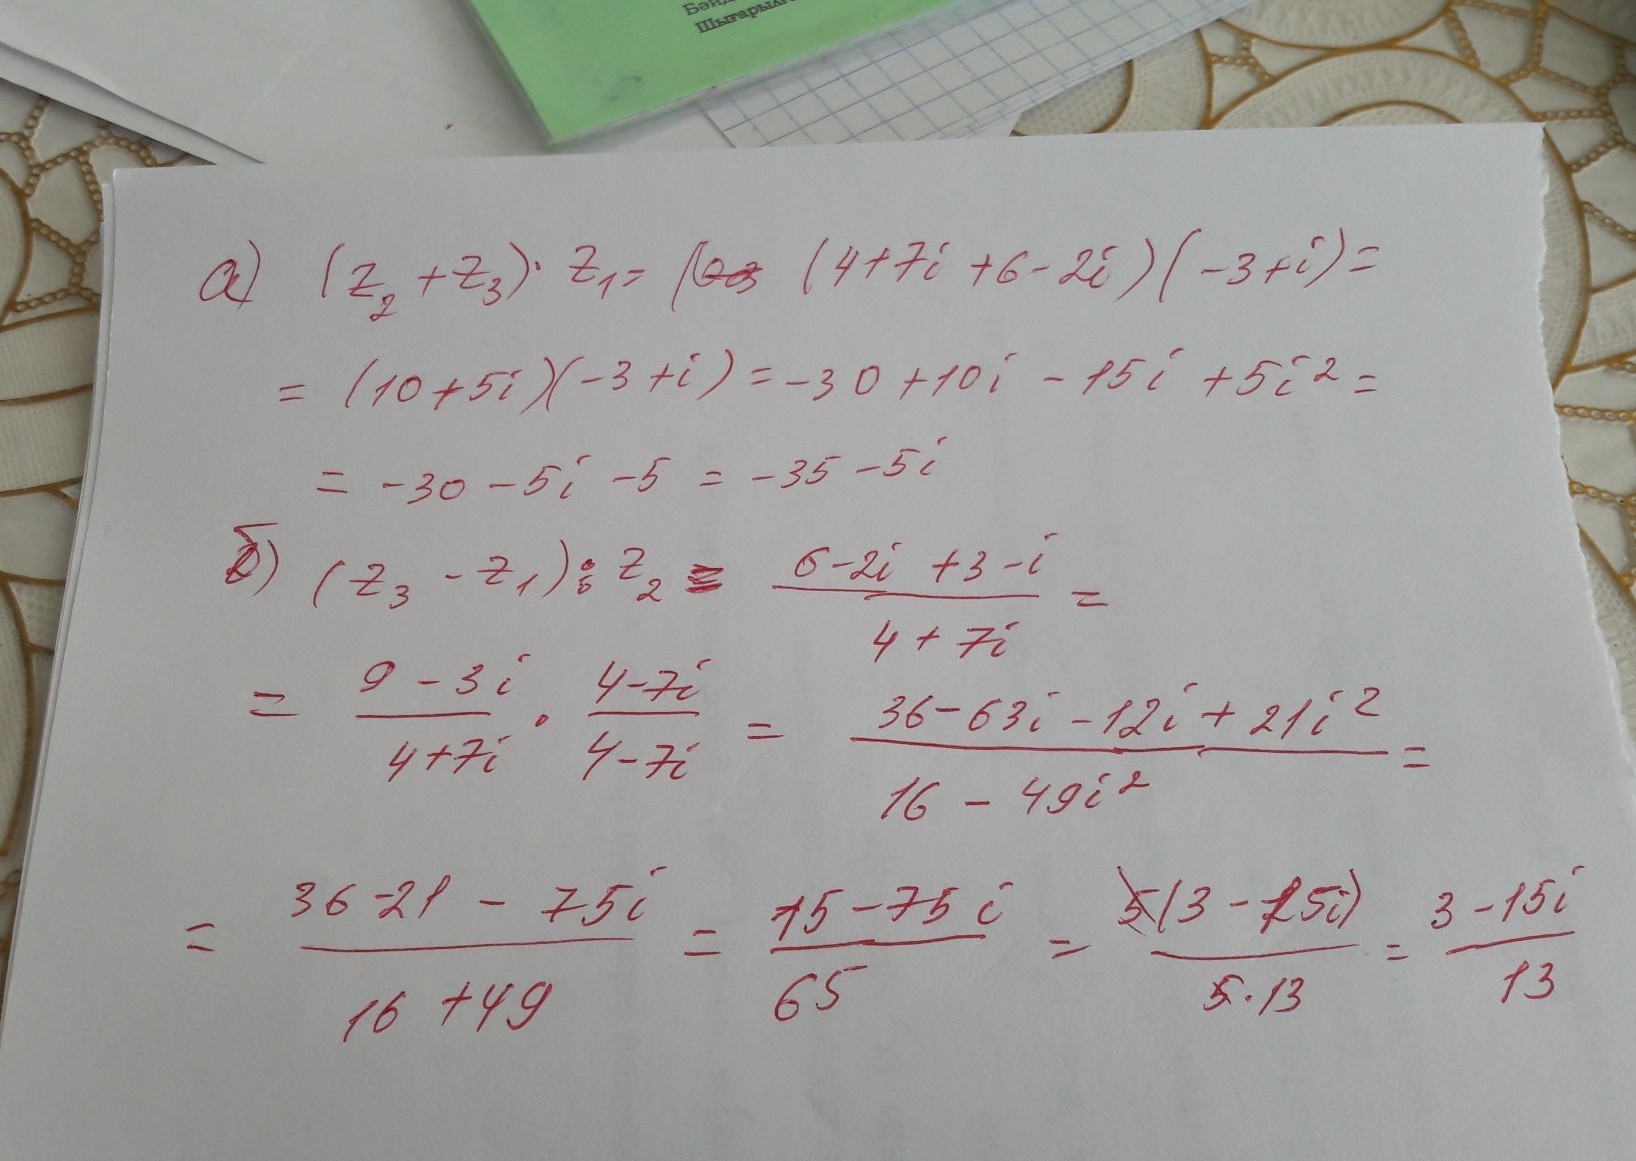 Шығарыл
а) (z₂ + z₃)· z₁ = (4+7i +6-2i)(-3+i) =
= (10+5i)(-3+i) = -30 +10i -15i +5i² =
= -30 -5i -5 = -35 -5i
б) (z₃ - z₁) : z₂ = (6-2i +3-i)/(4+7i) =
= (9-3i)/(4+7i) · (4-7i)/(4-7i) = (36-63i-12i+21i²)/(16-49i²) =
= (36-21-75i)/(16+49) = (15-75i)/65 = 5(3-15i)/(5·13) = (3-15i)/13